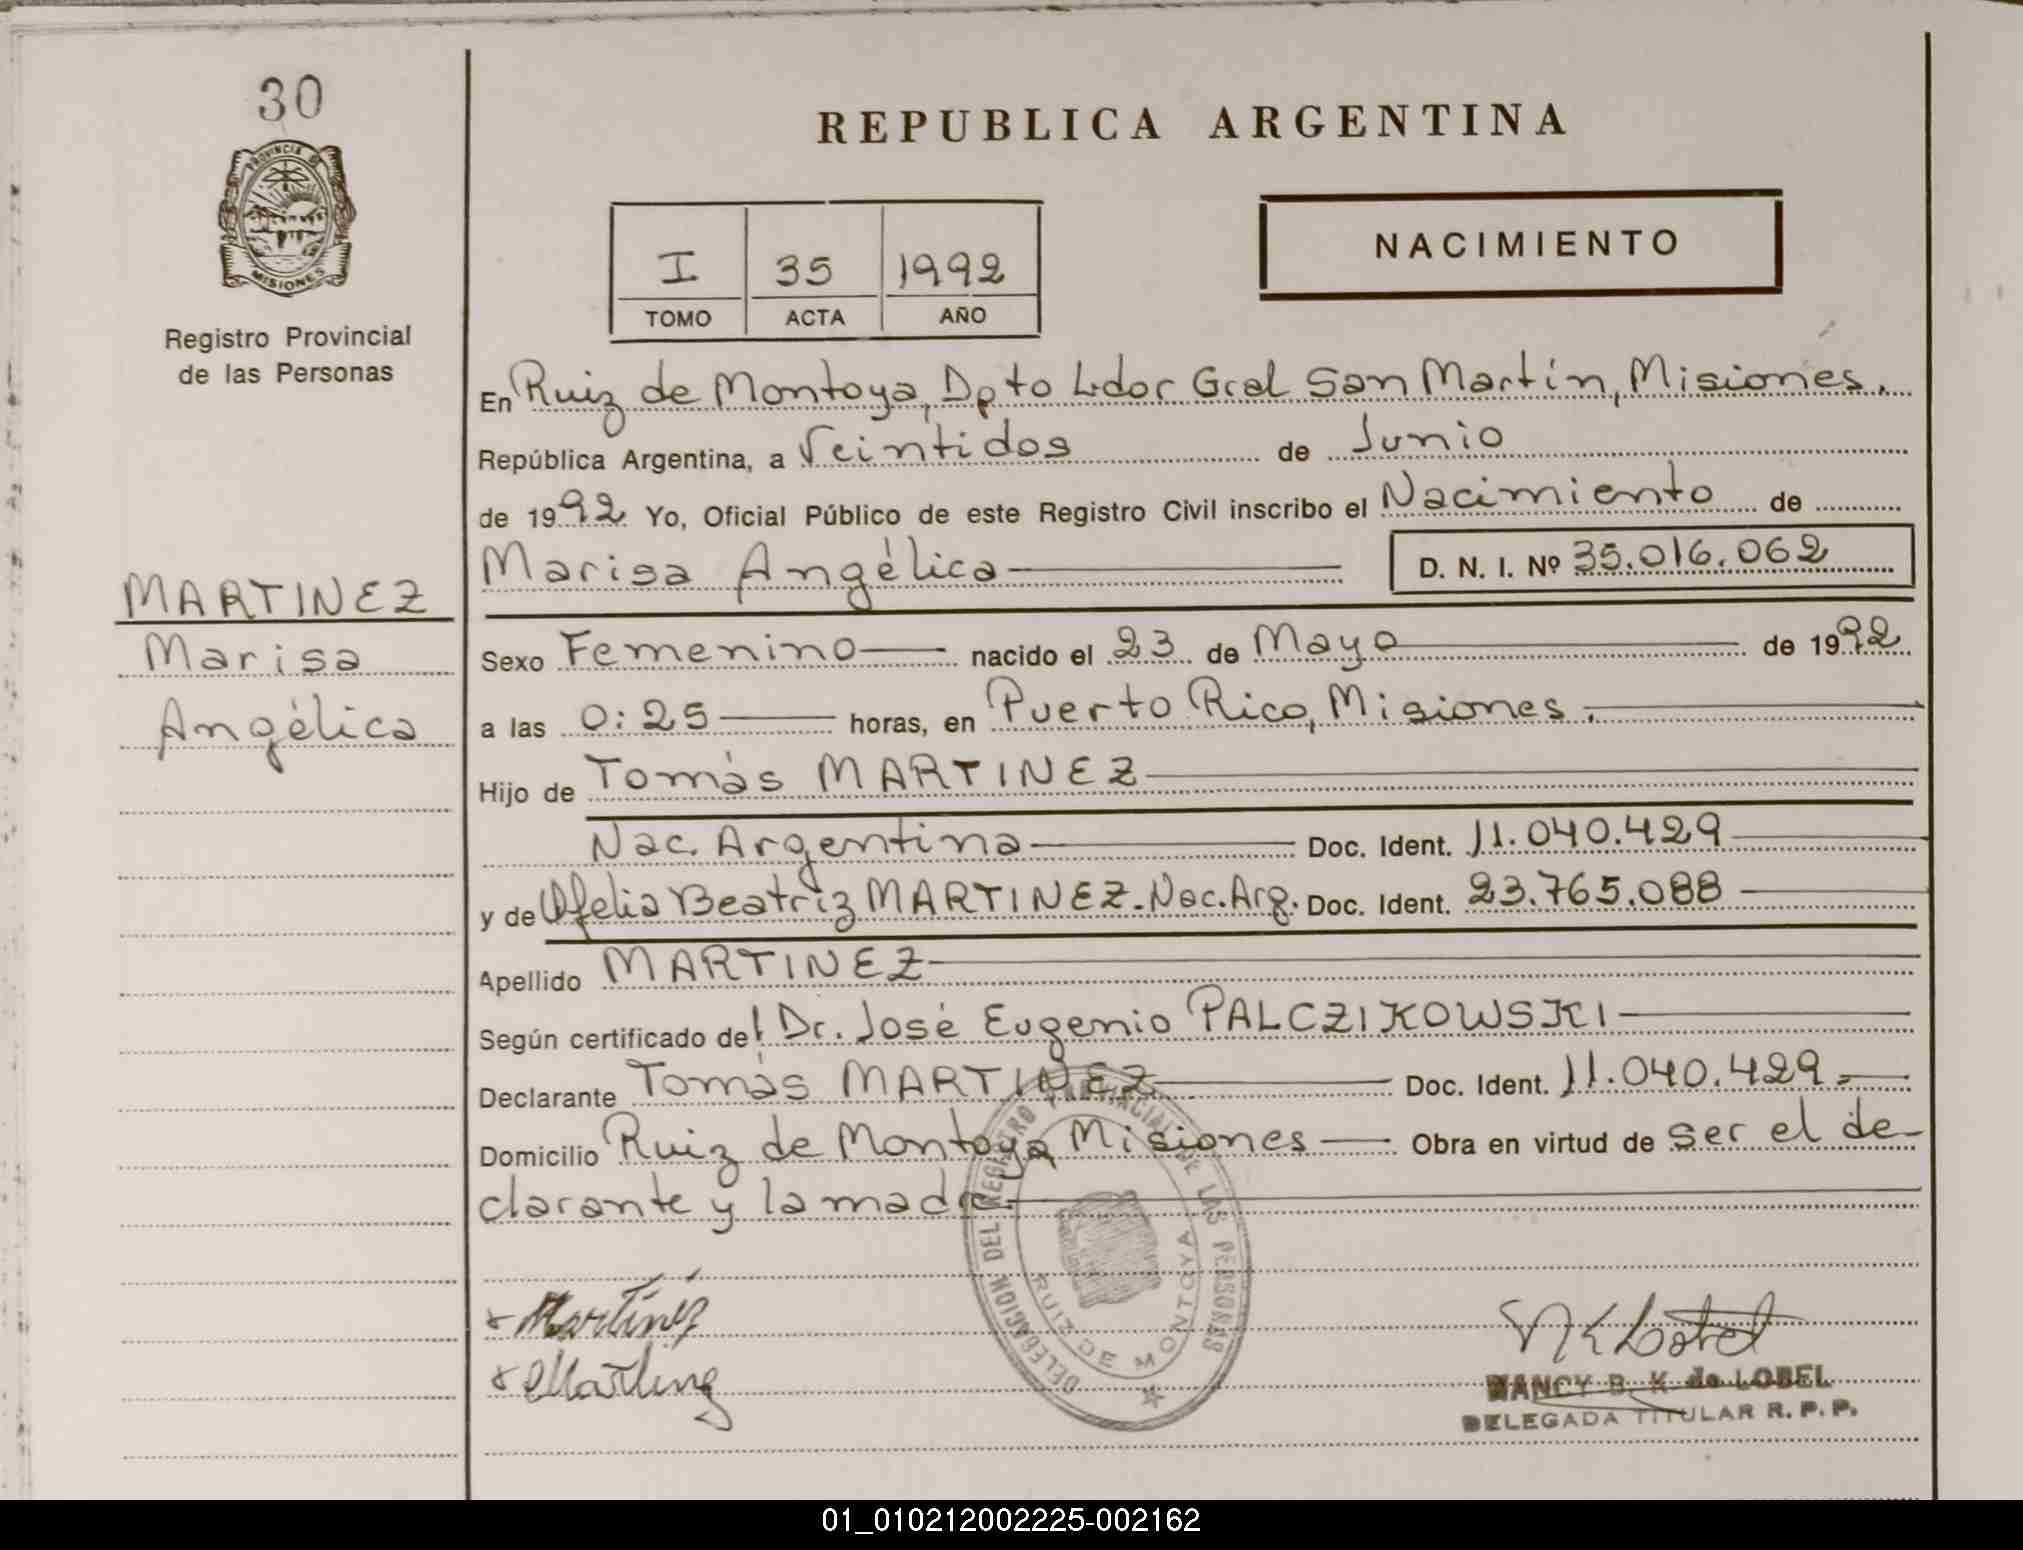 30
PROVINCIA DE
MISIONES
Registro Provincial
de las Personas
MARTINEZ
Marisa
Angélica
REPUBLICA ARGENTINA
I 35 1992
TOMO ACTA AÑO
NACIMIENTO
En Ruiz de Montoya, Dpto Ldor Gral San Martín, Misiones.
República Argentina, a Veintidos de Junio
de 1992 Yo, Oficial Público de este Registro Civil inscribo el Nacimiento de
Marisa Angélica D. N. I. Nº 35.016.062
Sexo Femenino nacido el 23 de Mayo de 1992
a las 0:25 horas, en Puerto Rico, Misiones.
Hijo de Tomás MARTINEZ
Nac. Argentina Doc. Ident. 11.040.429
y de Ofelia Beatriz MARTINEZ. Nac. Arg. Doc. Ident. 23.765.088
Apellido MARTINEZ
Según certificado del Dr. José Eugenio PALCZIKOWSKI
Declarante Tomás MARTINEZ Doc. Ident. 11.040.429.
Domicilio Ruiz de Montoya Misiones Obra en virtud de ser el de-
clarante y la madre.
DELEGACION DEL REGISTRO PROVINCIAL DE LAS PERSONAS
RUIZ DE MONTOYA
Martínez
Martinez
NK Lobel
NANCY B. K. de LOBEL
DELEGADA TITULAR R. P. P.
01_010212002225-002162